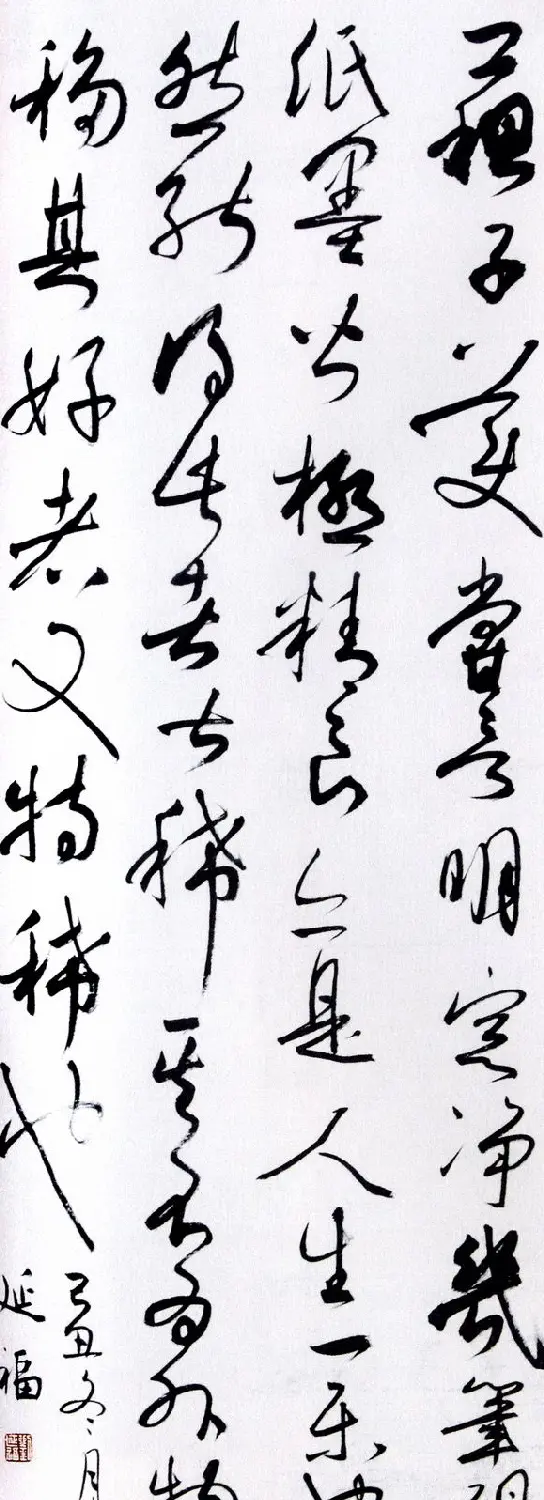 蘓子美嘗言明窓净幾筆硯
紙墨皆極精良亦是人生一樂也
然能得此者甚稀其不為外物
移其好者又特稀也
己丑冬月
延福